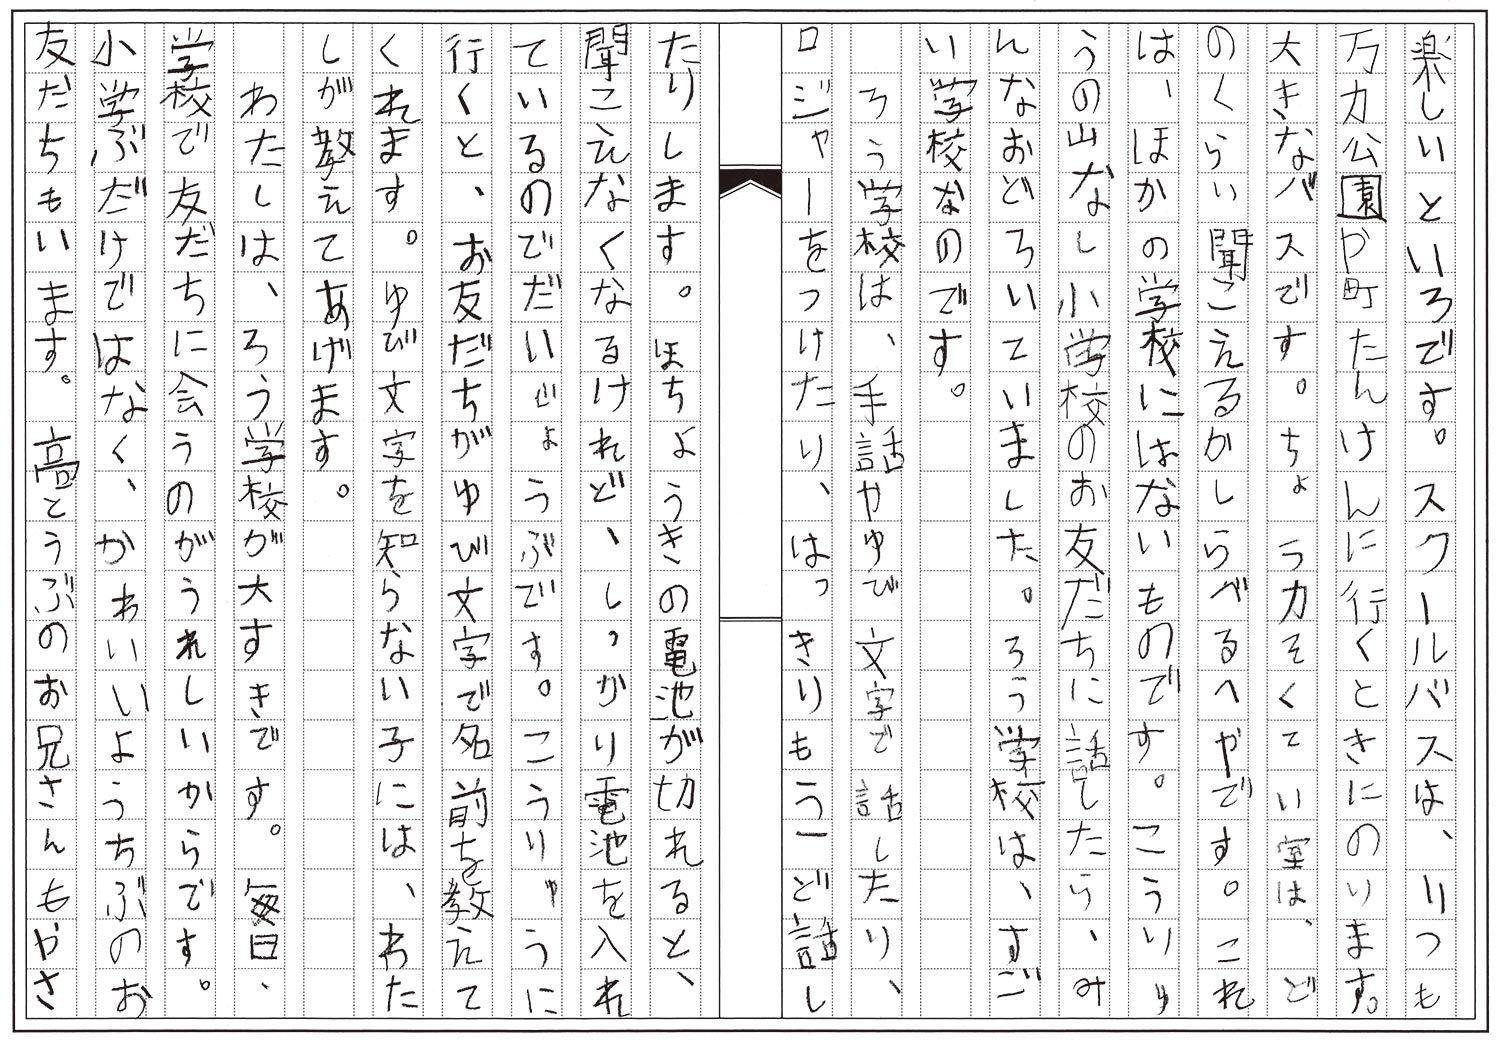 楽しいといろです。スクールバスは、いつも
万力公園や町たんけんに行くときにのります。
大きなバスです。ちょう力そくてい室は、ど
のくらい聞こえるかしらべるへやです。これ
は、ほかの学校にはないものです。こうりゅ
うの山なし小学校のお友だちに話したら、み
んなおどろいていました。ろう学校は、すご
い学校なのです。
ろう学校は、手話やゆび文字で話したり、
ロジャーをつけたり、はっきりもう一ど話し
たりします。ほちょうきの電池が切れると、
聞こえなくなるけれど、しっかり電池を入れ
ているのでだいじょうぶです。こうりゅうに
行くと、お友だちがゆび文字で名前を教えて
くれます。ゆび文字を知らない子には、わた
しが教えてあげます。
わたしは、ろう学校が大すきです。毎日、
学校で友だちに会うのがうれしいからです。
小学ぶだけではなく、かわいいようちぶのお
友だちもいます。高とうぶのお兄さんもやさ